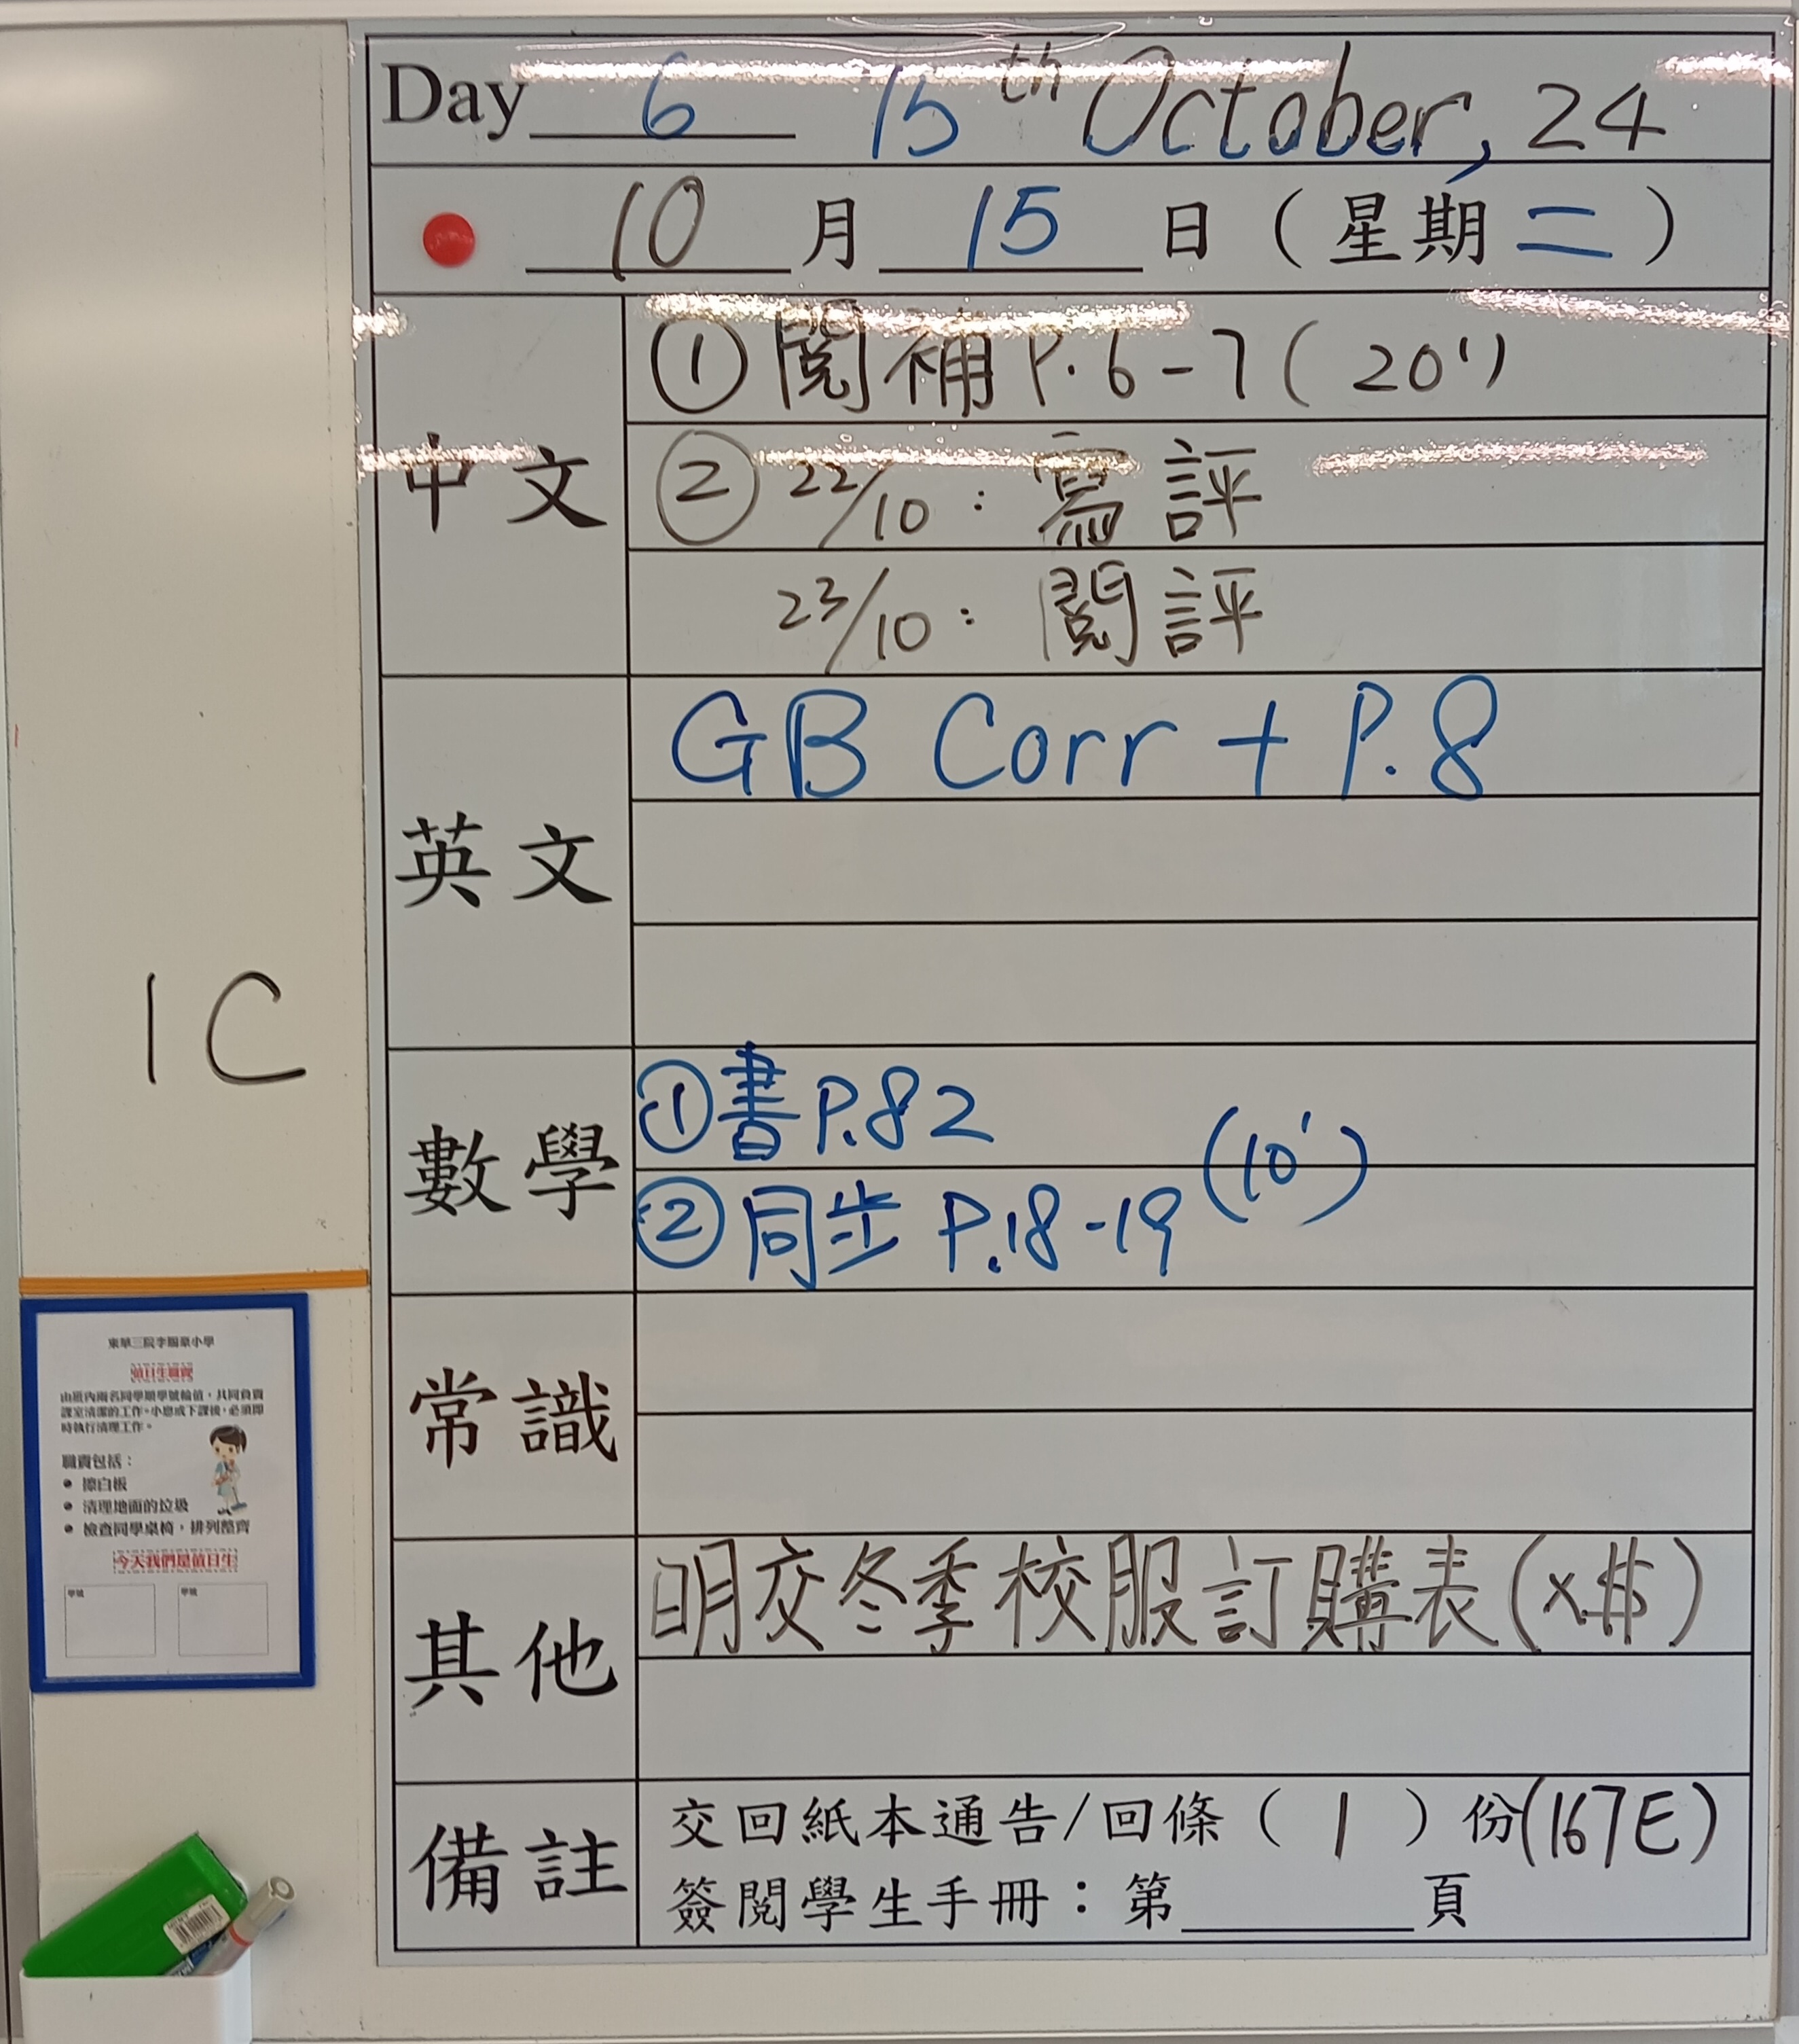 Day 6 15th October, 24
10 月 15 日 ( 星期 二 )
中文
① 閱補 P. 6 - 7 ( 20' )
② 22/10 : 寫評
23/10 : 閱評
英文
GB Corr + P. 8
數學
① 書 P.82
② 同步 P.18 - 19 (10')
常識
其他
明交冬季校服訂購表 (x$)
備註
交回紙本通告/回條 ( 1 ) 份 (167E)
簽閱學生手冊：第____頁
1C
值日生職責
由班內兩名同學順學號輪值，共同負責
課室清潔的工作。小息或下課後，必須即
時執行清理工作。
職責包括：
• 擦白板
• 清理地面的垃圾
• 檢查同學桌椅，排列整齊
今天我們是值日生
學號 學號